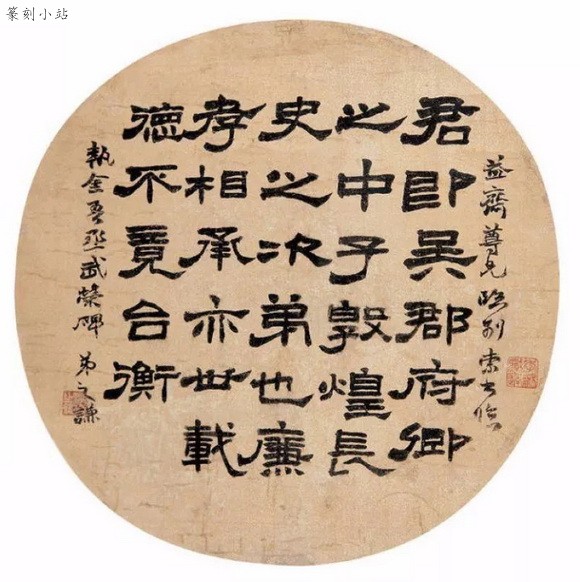 篆刻小站
益齋尊兄臨別索書臨
君即吳郡府卿
之中子敦煌長
史之次弟也廉
孝相承亦世載
德不竟台衡
執金吾丞武榮碑 弟之謙